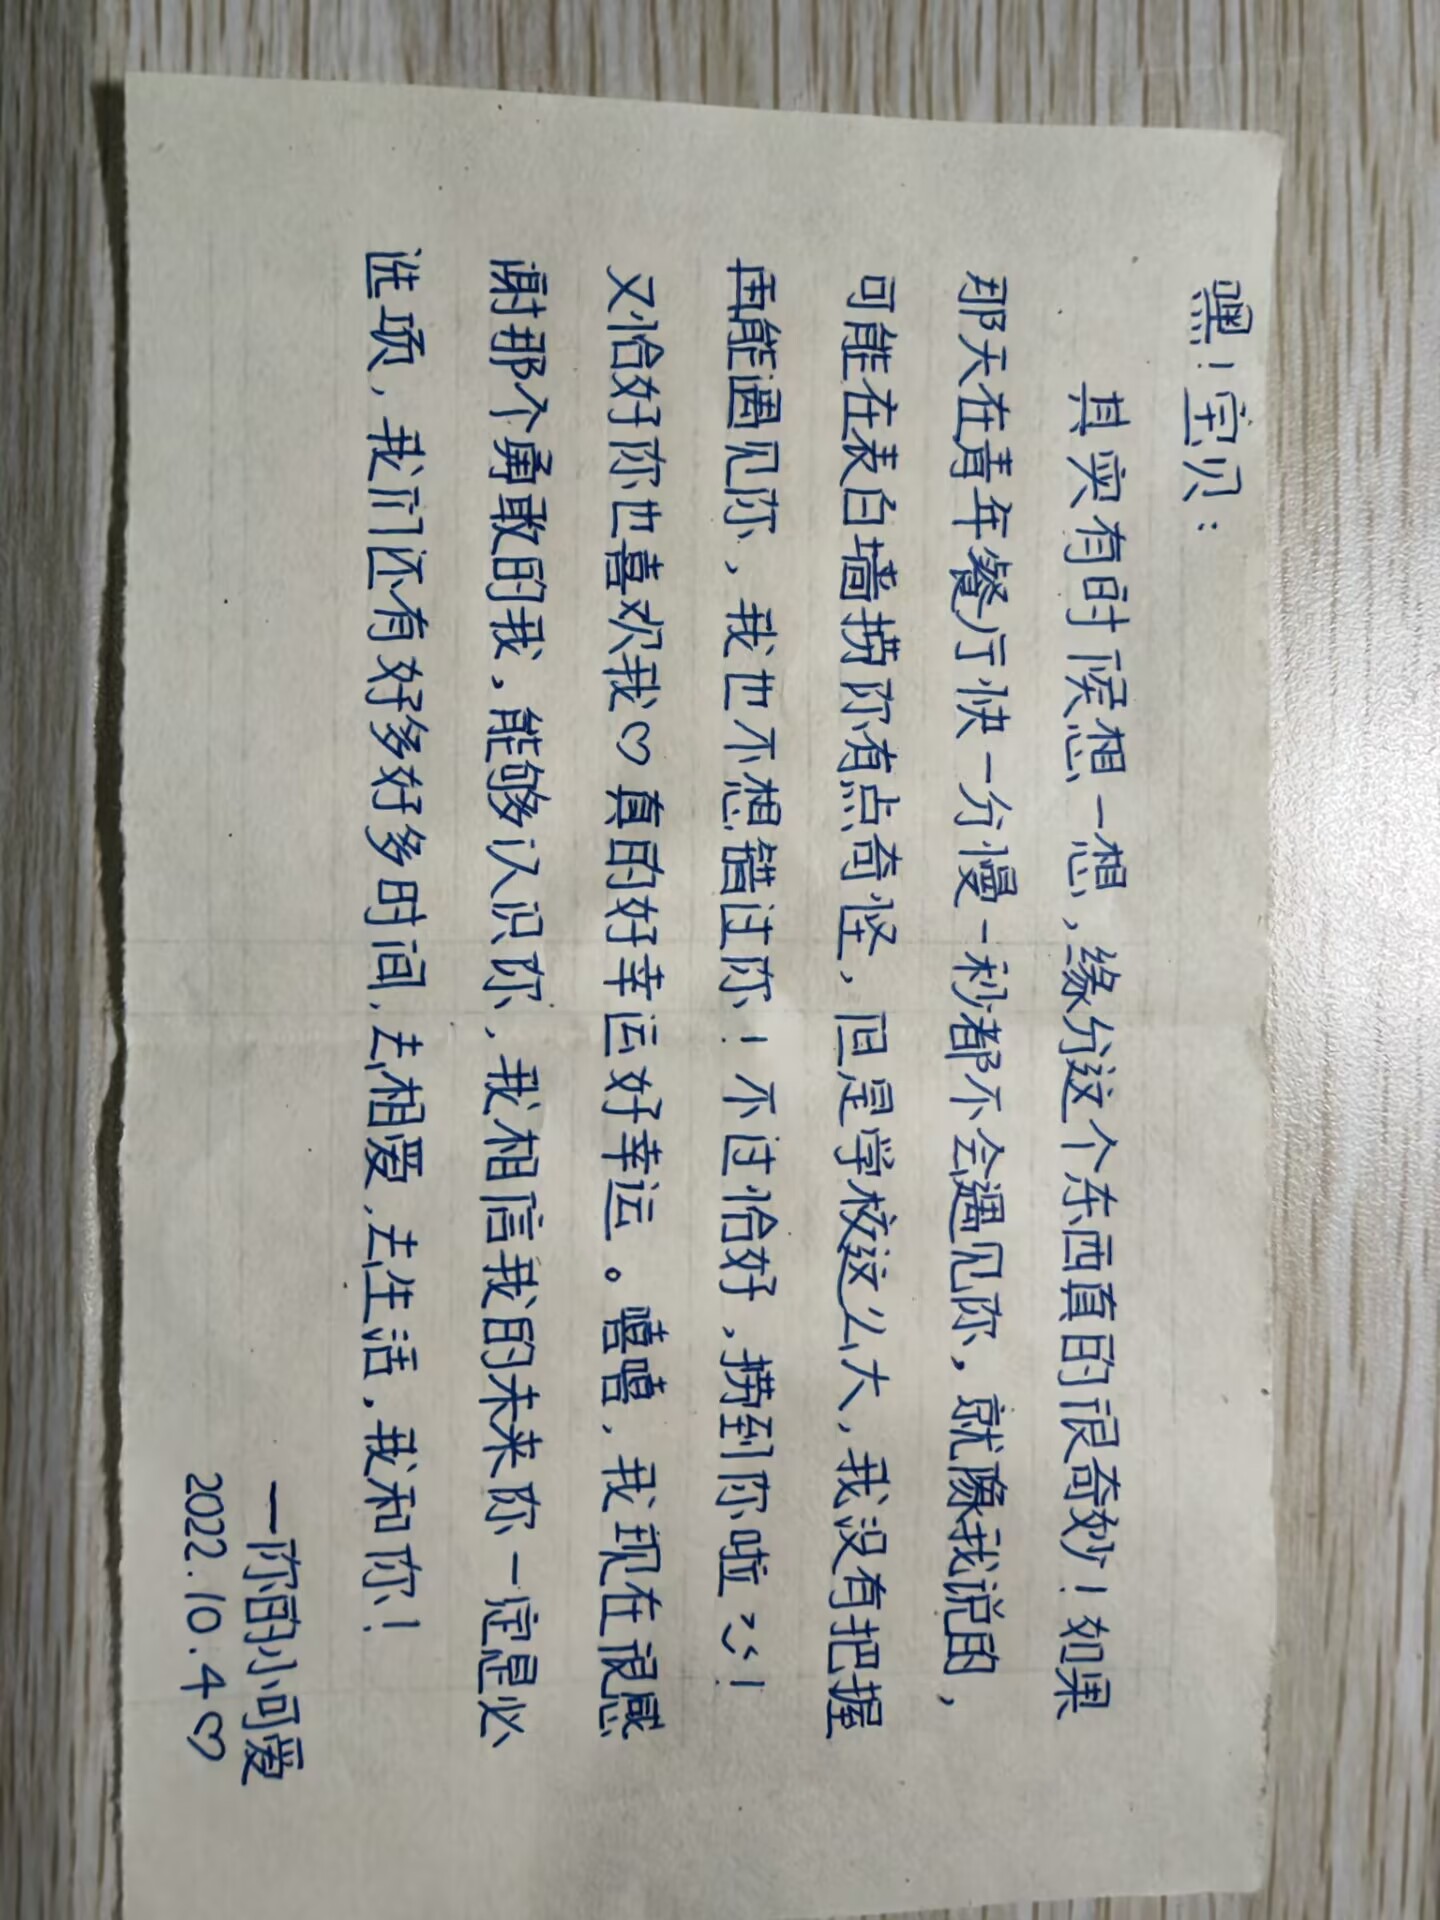 嘿！宝贝：
其实有时候想一想，缘分这个东西真的很奇妙！如果
那天在青年餐厅快一分慢一秒都不会遇见你，就像我说的，
可能在表白墙捞你有点奇怪，但是学校这么大，我没有把握
再能遇见你，我也不想错过你！不过恰好，捞到你啦！
又恰好你也喜欢我♡真的好幸运好幸运。嘻嘻，我现在很感
谢那个勇敢的我，能够认识你，我相信我的未来你一定是必
选项，我们还有好多好多时间，去相爱，去生活，我和你！
—你的小可爱
2022.10.4♡